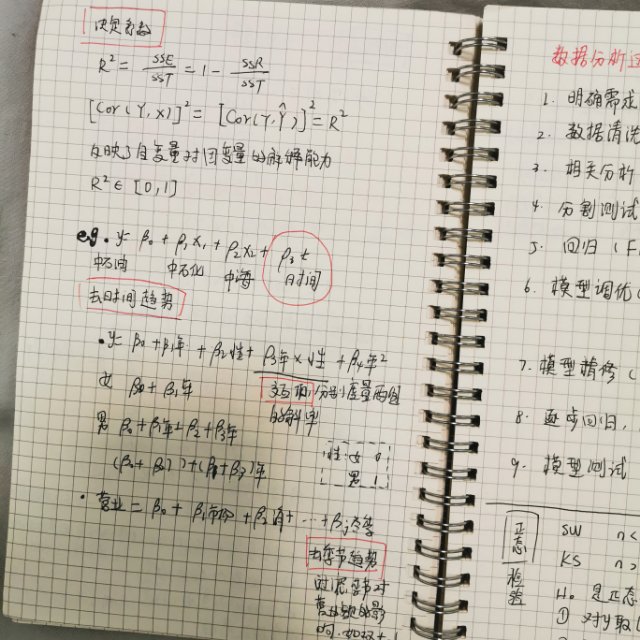 决定系数
R² = SSE/SST = 1 - SSR/SST
[Cor(Y,X)]² = [Cor(Y,Ŷ)]² = R²
反映了自变量对因变量的解释能力
R² ∈ [0,1]
eg. y = β₀ + β₁x₁ + β₂x₂ + β₃t
中石油 中石化 中海 时间
去时间趋势
• y = β₀ + β₁年 + β₂性 + β₃年×性 + β₄年²
女 β₀ + β₁年
交互项 分别度量两组
的斜率
男 β₀ + β₁年 + β₂ + β₃年
(β₀ + β₂) + (β₁ + β₃)年
性 女 0
男 1
• 营业 = β₀ + β₁ + β₂ + … + βⱼ
去季节趋势
数据分析
1. 明确需求
2. 数据清洗
3. 相关分析
4. 分割测试
5. 回归 (
6. 模型调优 (
7. 模型精修 (
8. 逐步回归,
9. 模型测试
正态检验
SW n<
KS n>
H₀ 是正态
① 对Y取